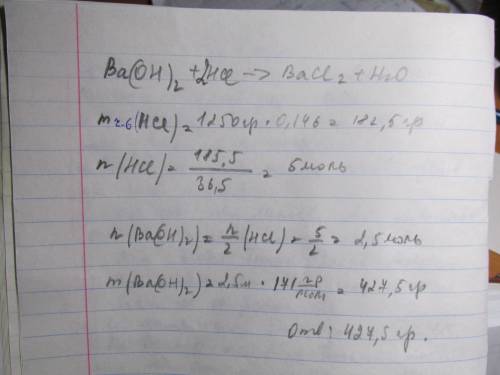 Ba(OH)₂ + 2HCl -> BaCl₂ + H₂O
m г-в (HCl) = 1250гр · 0,146 = 182,5гр
n(HCl) = 185,5/36,5 = 5моль
n(Ba(OH)₂) = n/2 (HCl) = 5/2 = 2,5моль
m(Ba(OH)₂) = 2,5м · 171 гр/моль = 427,5гр
Отв: 427,5гр.